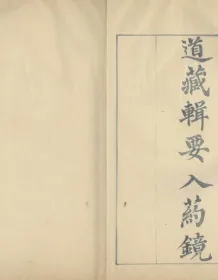 道藏輯要入葯鏡